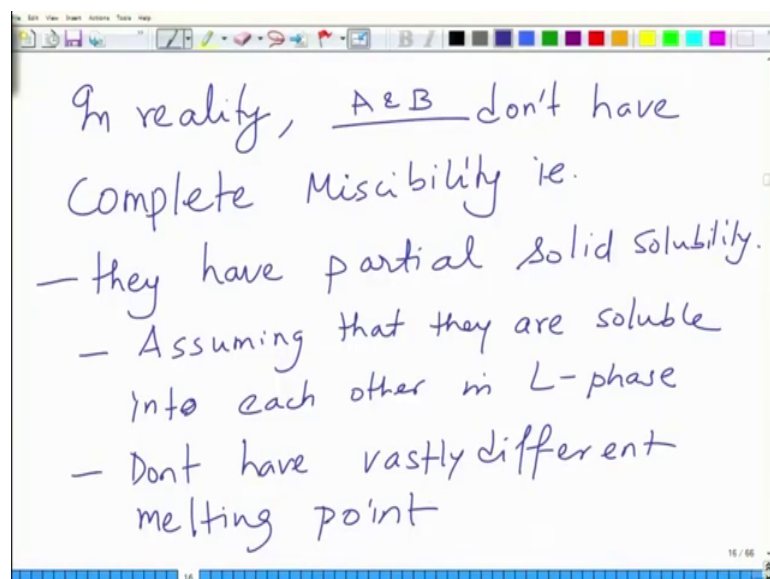 File Edit View Insert Actions Tools Help
In reality, A & B don't have
Complete Miscibility ie.
— they have partial solid solubility.
— Assuming that they are soluble
into each other in L-phase
— Dont have vastly different
melting point
16 / 66
16